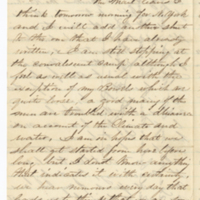 think tomorrow morning for Suffolk
and I will add another sheet
to the one that I have already
written, I am still stopping at
the convalescent Camp although I
feel as well as usual with the
exception of my Bowels which are
quite loose, a good many of the
men are troubled with a diarrhea
on account of the Climate and
water, I am in hopes that we
shall get started from here before
long, but I dont know anything
that indicates it with certainty,
we hear rumours every day that